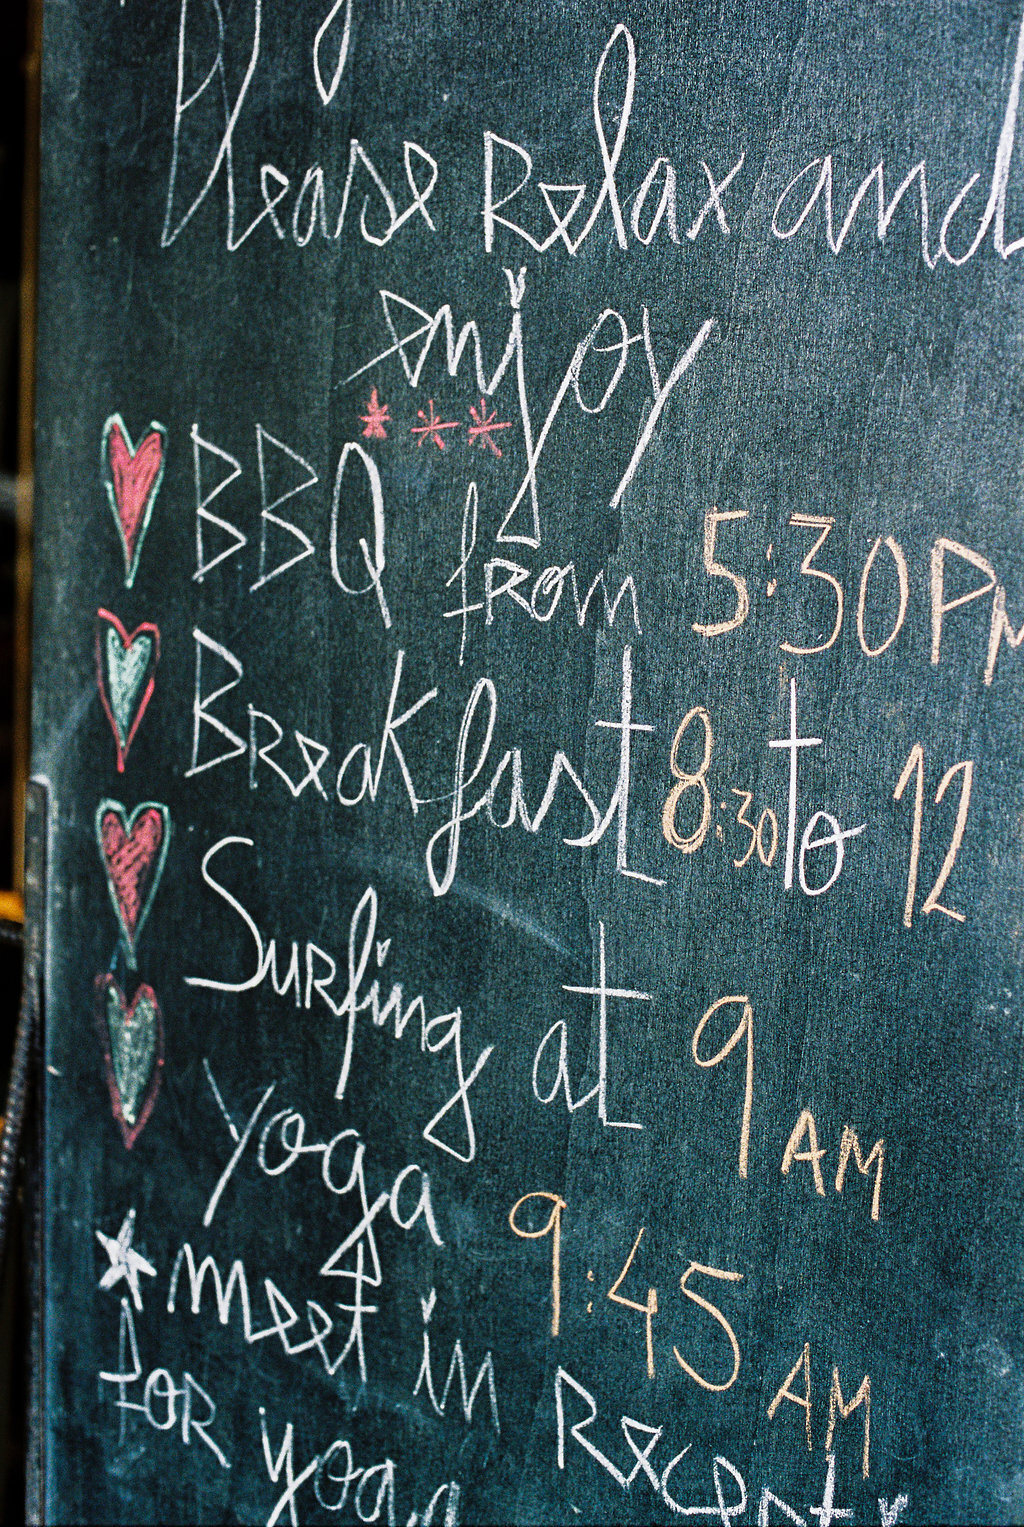 Please Relax and
enjoy
***
BBQ from 5:30PM
Breakfast 8:30 to 12
Surfing at 9 AM
yoga 9:45 AM
*meet in
for yoga